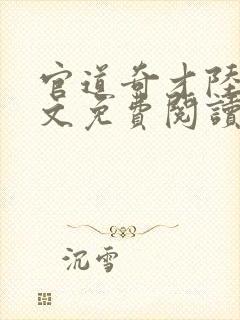 官道奇才陸
文免費閱讀
沉雪